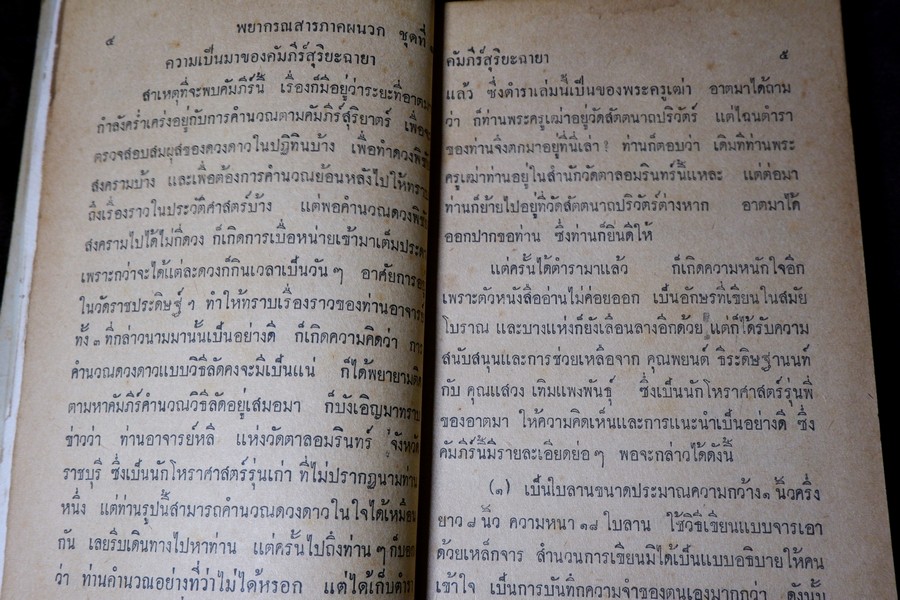 พยากรณสารภาคผนวก ชุดที่
๔
ความเป็นมาของคัมภีร์สุริยะฉายา
สาเหตุที่จะพบคัมภีร์นี้ เรื่องก็มีอยู่ว่าระยะที่อาตมา
กำลังคร่ำเคร่งอยู่กับการคำนวณตามคัมภีร์สุริยาตร์ เพื่อจะ
ตรวจสอบสมผุสของดวงดาวในปฏิทินบ้าง เพื่อทำดวงพิชัย
สงครามบ้าง และเพื่อต้องการคำนวณย้อนหลังไปให้ทราบ
ถึงเรื่องราวในประวัติศาสตร์บ้าง แต่พอคำนวณดวงพิชัย
สงครามไปได้ไม่กี่ดวง ก็เกิดการเบื่อหน่ายเข้ามาเต็มประดา
เพราะกว่าจะได้แต่ละดวงก็กินเวลาเป็นวัน ๆ อาศัยการอยู่
ในวัดราชประดิษฐ์ ฯ ทำให้ทราบเรื่องราวของท่านอาจารย์
ทั้ง ๓ ที่กล่าวนามมานั้นเป็นอย่างดี ก็เกิดความคิดว่า การ
คำนวณดวงดาวแบบวิธีลัดคงจะมีเป็นแน่ ก็ได้พยายามติด
ตามหาคัมภีร์คำนวณวิธีลัดอยู่เสมอมา ก็บังเอิญมาทราบ
ข่าวว่า ท่านอาจารย์หลี แห่งวัดตาลอมรินทร์ จังหวัด
ราชบุรี ซึ่งเป็นนักโหราศาสตร์รุ่นเก่า ที่ไม่ปรากฏนามท่าน
หนึ่ง แต่ท่านรูปนี้สามารถคำนวณดวงดาวในใจได้เหมือน
กัน เลยรีบเดินทางไปหาท่าน แต่ครั้นไปถึงท่าน ๆ ก็บอก
ว่า ท่านคำนวณอย่างที่ว่าไม่ได้หรอก แต่ได้เก็บตำรา
คัมภีร์สุริยะฉายา
๕
แล้ว ซึ่งตำราเล่มนี้เป็นของพระครูเฒ่า อาตมาได้ถาม
ว่า ก็ท่านพระครูเฒ่าอยู่วัดสัตตนาถปริวัตร์ แต่ไฉนตำรา
ของท่านจึงตกมาอยู่ที่นี่เล่า? ท่านก็ตอบว่า เดิมทีท่านพระ
ครูเฒ่าท่านอยู่ในสำนักวัดตาลอมรินทร์นี้แหละ แต่ต่อมา
ท่านก็ย้ายไปอยู่ที่วัดสัตตนาถปริวัตร์ต่างหาก อาตมาได้
ออกปากขอท่าน ซึ่งท่านก็ยินดีให้
แต่ครั้นได้ตำรามาแล้ว ก็เกิดความหนักใจอีก
เพราะตัวหนังสืออ่านไม่ค่อยออก เป็นอักษรที่เขียนในสมัย
โบราณ และบางแห่งก็ยังเลื่อนลางอีกด้วย แต่ก็ได้รับความ
สนับสนุนและการช่วยเหลือจาก คุณพยนต์ ธีระดิษฐานนท์
กับ คุณแสวง เทิมแพงพันธุ์ ซึ่งเป็นนักโหราศาสตร์รุ่นพี่
ของอาตมา ให้ความคิดเห็นและการแนะนำเป็นอย่างดี ซึ่ง
คัมภีร์นี้มีรายละเอียดย่อ ๆ พอจะกล่าวได้ดังนี้
(๑) เป็นใบลานขนาดประมาณความกว้าง ๑ นิ้วครึ่ง
ยาว ๘ นิ้ว ความหนา ๑๘ ใบลาน ใช้วิธีเขียนแบบจารเอา
ด้วยเหล็กจาร สำนวนการเขียนมิได้เป็นแบบอธิบายให้คน
เข้าใจ เป็นการบันทึกความจำของตนเองมากกว่า ดังนั้น